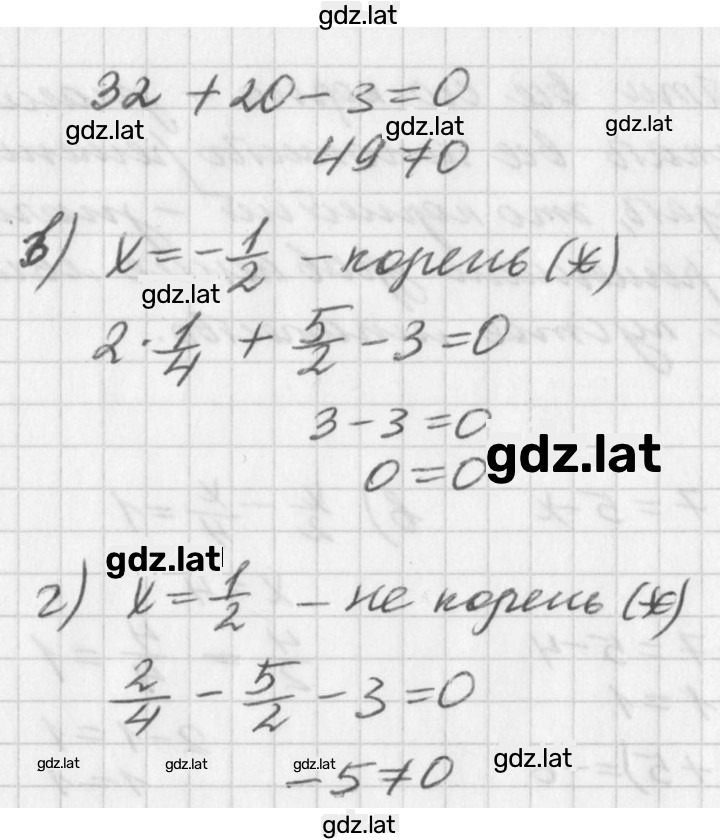 gdz.lat
32 + 20 - 3 = 0
gdz.lat gdz.lat gdz.lat
49 ≠ 0
в) x = -1/2 - корень (*)
gdz.lat
2 · 1/4 + 5/2 - 3 = 0
3 - 3 = 0
gdz.lat
0 = 0
gdz.lat
г) x = 1/2 - не корень (*)
2/4 - 5/2 - 3 = 0
gdz.lat gdz.lat gdz.lat gdz.lat
-5 ≠ 0
gdz.lat